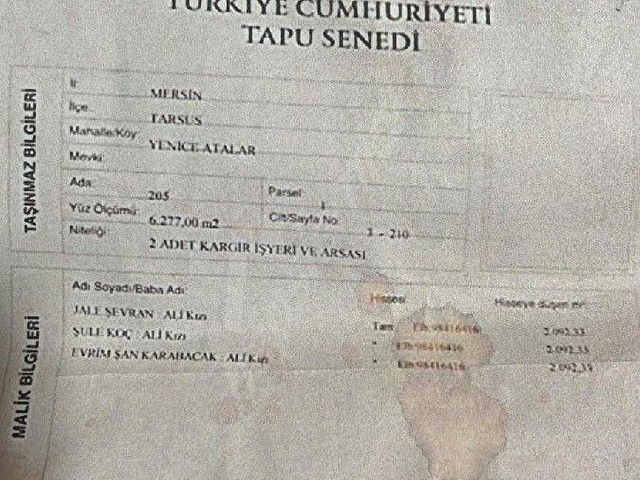 TÜRKİYE CUMHURİYETİ
TAPU SENEDİ
TAŞINMAZ BİLGİLERİ
İl:
MERSİN
İlçe:
TARSUS
Mahalle/Köy:
YENİCE ATALAR
Mevki:
Ada:
205
Parsel:
1
Yüz Ölçümü:
6.277,00 m2
Cilt/Sayfa No:
3 - 210
Niteliği:
2 ADET KARGİR İŞYERİ VE ARSASI
MALİK BİLGİLERİ
Adı Soyadı/Baba Adı: Hissesi Hisseye düşen
JALE ŞEVRAN : ALİ Kızı Tam 98416416 2.092,33
ŞULE KOÇ : ALİ Kızı " 98416416 2.092,33
EVRİM ŞAN KARAHACAK : ALİ Kızı " 98416416 2.092,33